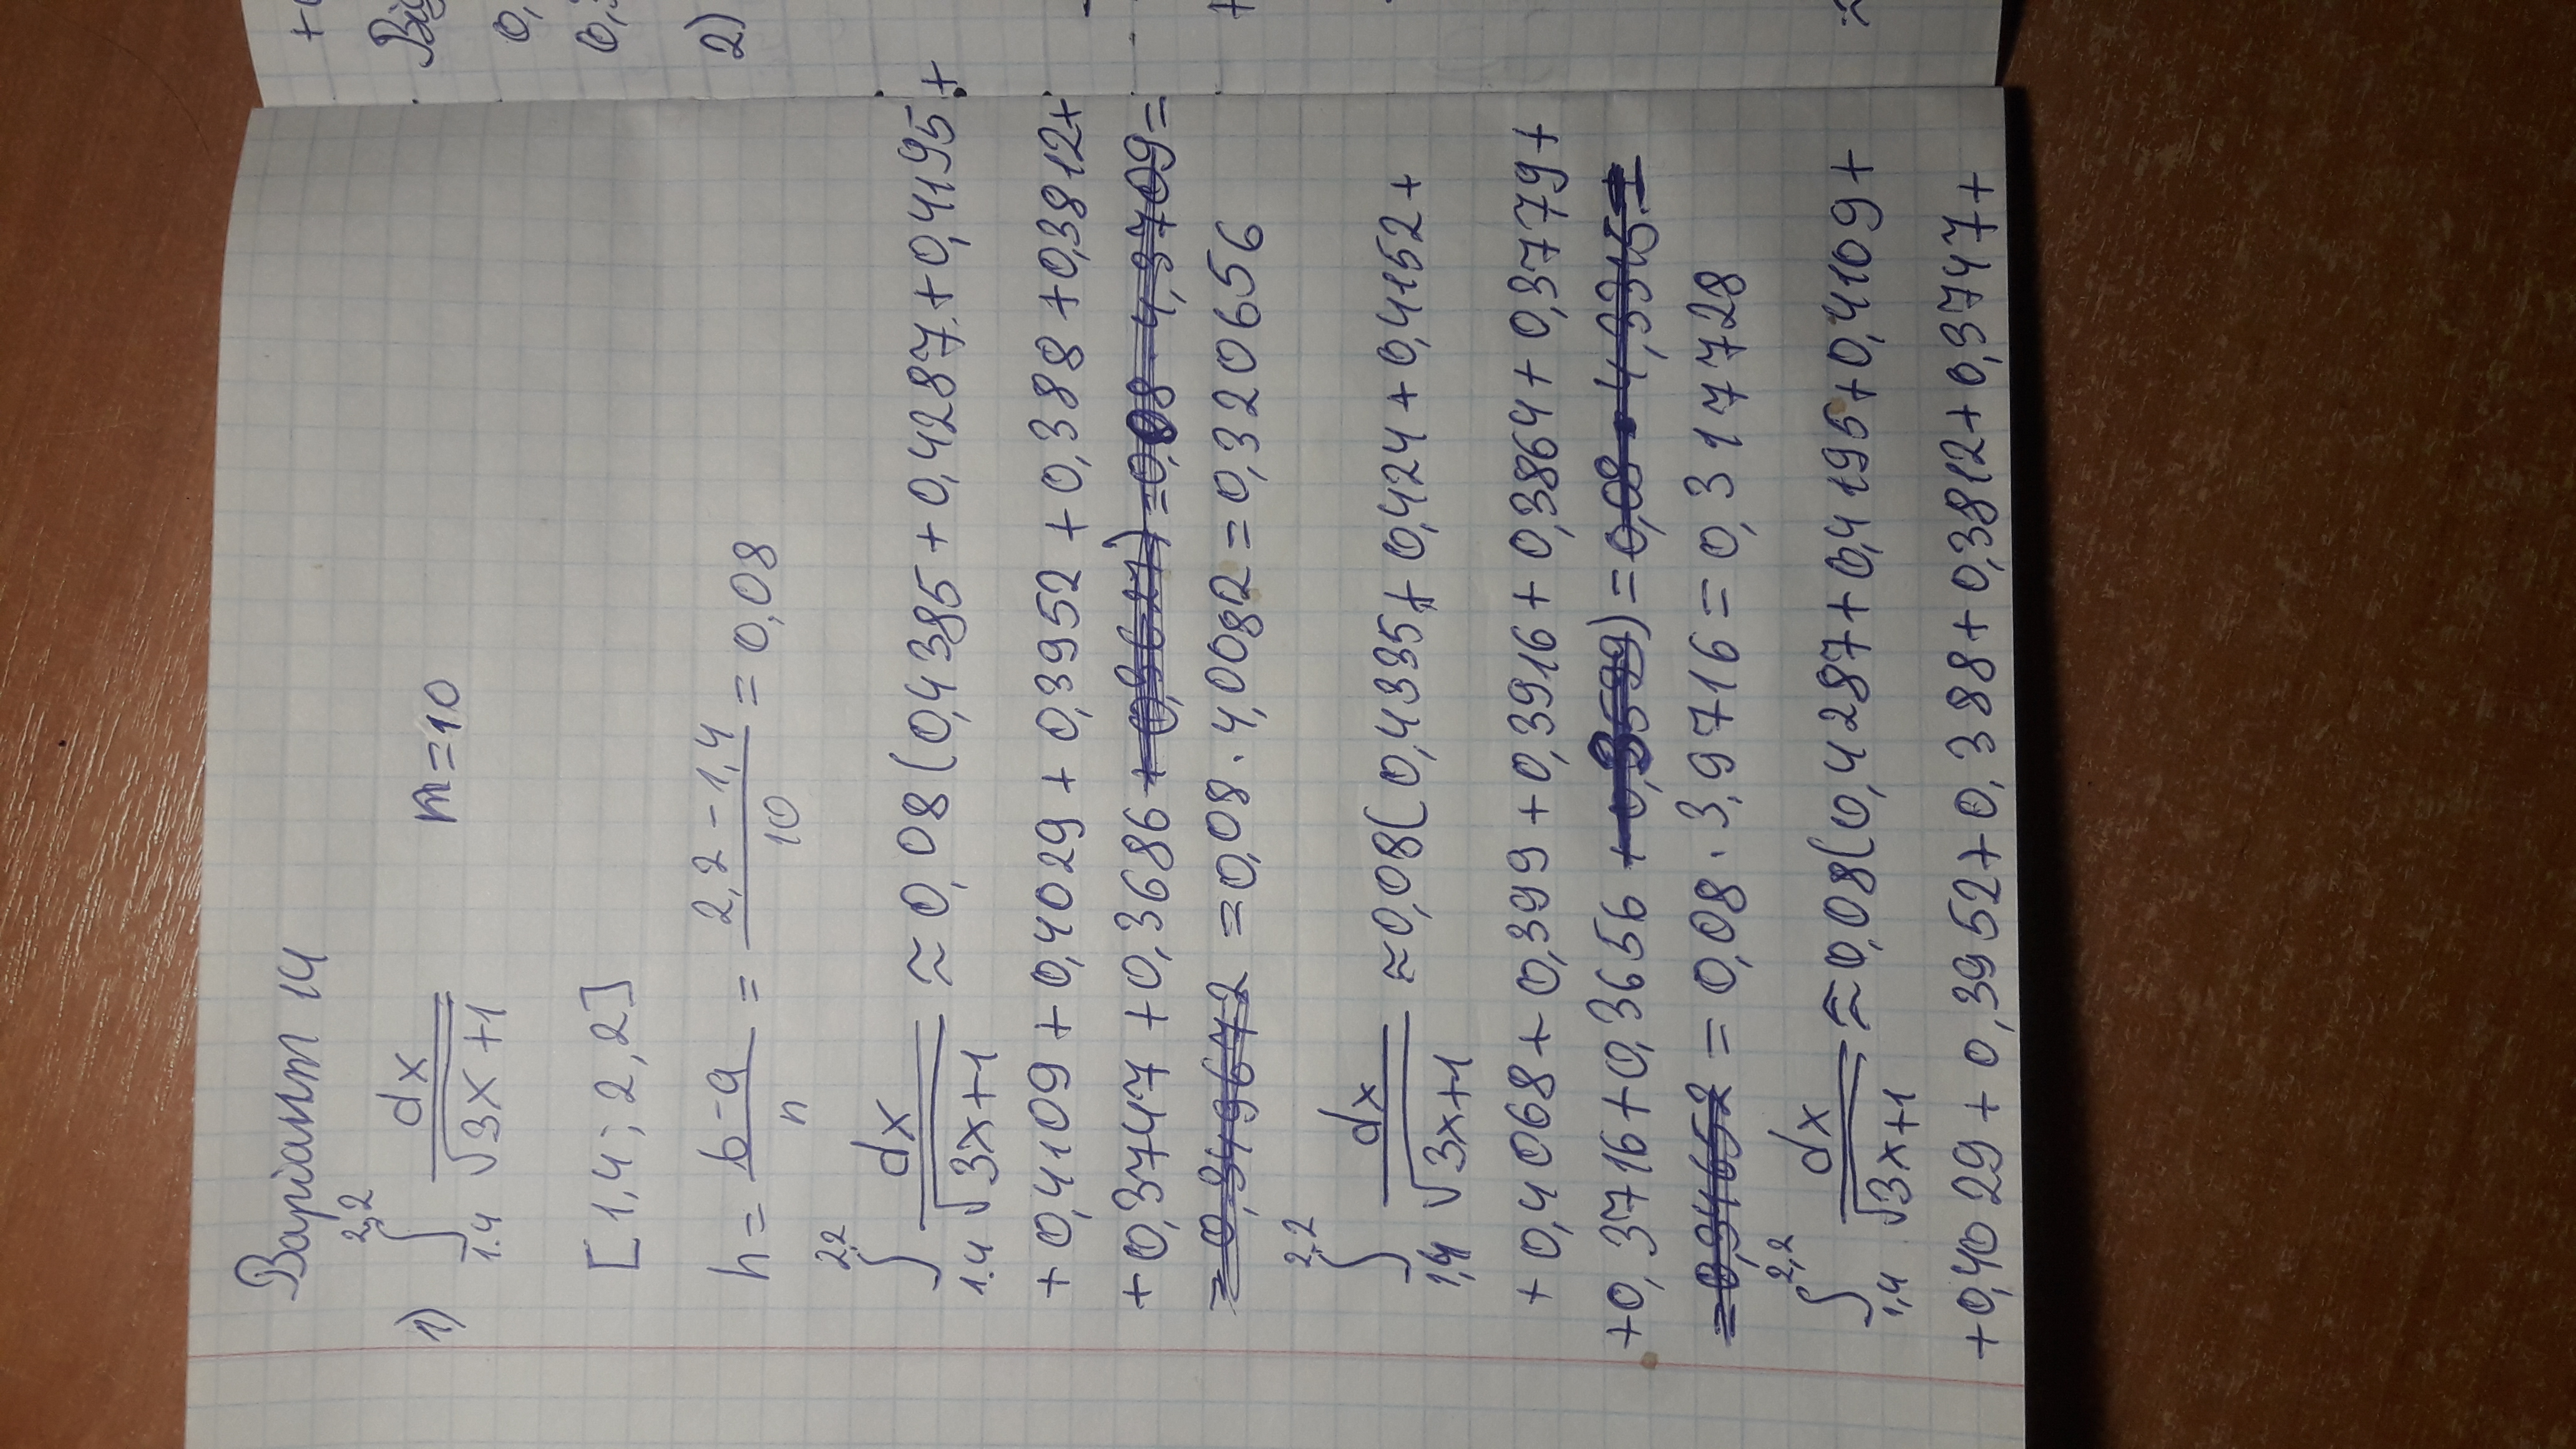 Варіант 14
1) ∫_{1.4}^{2,2} dx/√(3x+1) m=10
[1,4; 2,2]
h = (b-a)/n = (2,2-1,4)/10 = 0,08
∫_{1.4}^{2,2} dx/√(3x+1) ≈ 0,08(0,4385+0,4287+0,4195+
+0,4109+0,4029+0,3952+0,388+0,3812+
+0,3747+0,3686 +0,3627) =0,08·4,3709=
=0,349672 =0,08·4,0082=0,320656
∫_{1,4}^{2,2} dx/√(3x+1) ≈0,08(0,4335+0,424+0,4152+
+0,4068+0,399+0,3916+0,3864+0,3779+
+0,3716+0,3656 +0,3599)=0,08·4,3315=
=0,34652 =0,08·3,9716=0,317728
∫_{1,4}^{2,2} dx/√(3x+1) ≈0,08(0,4287+0,4195+0,4109+
+0,4029+0,3952+0,388+0,3812+0,3747+
Від
0,
2)